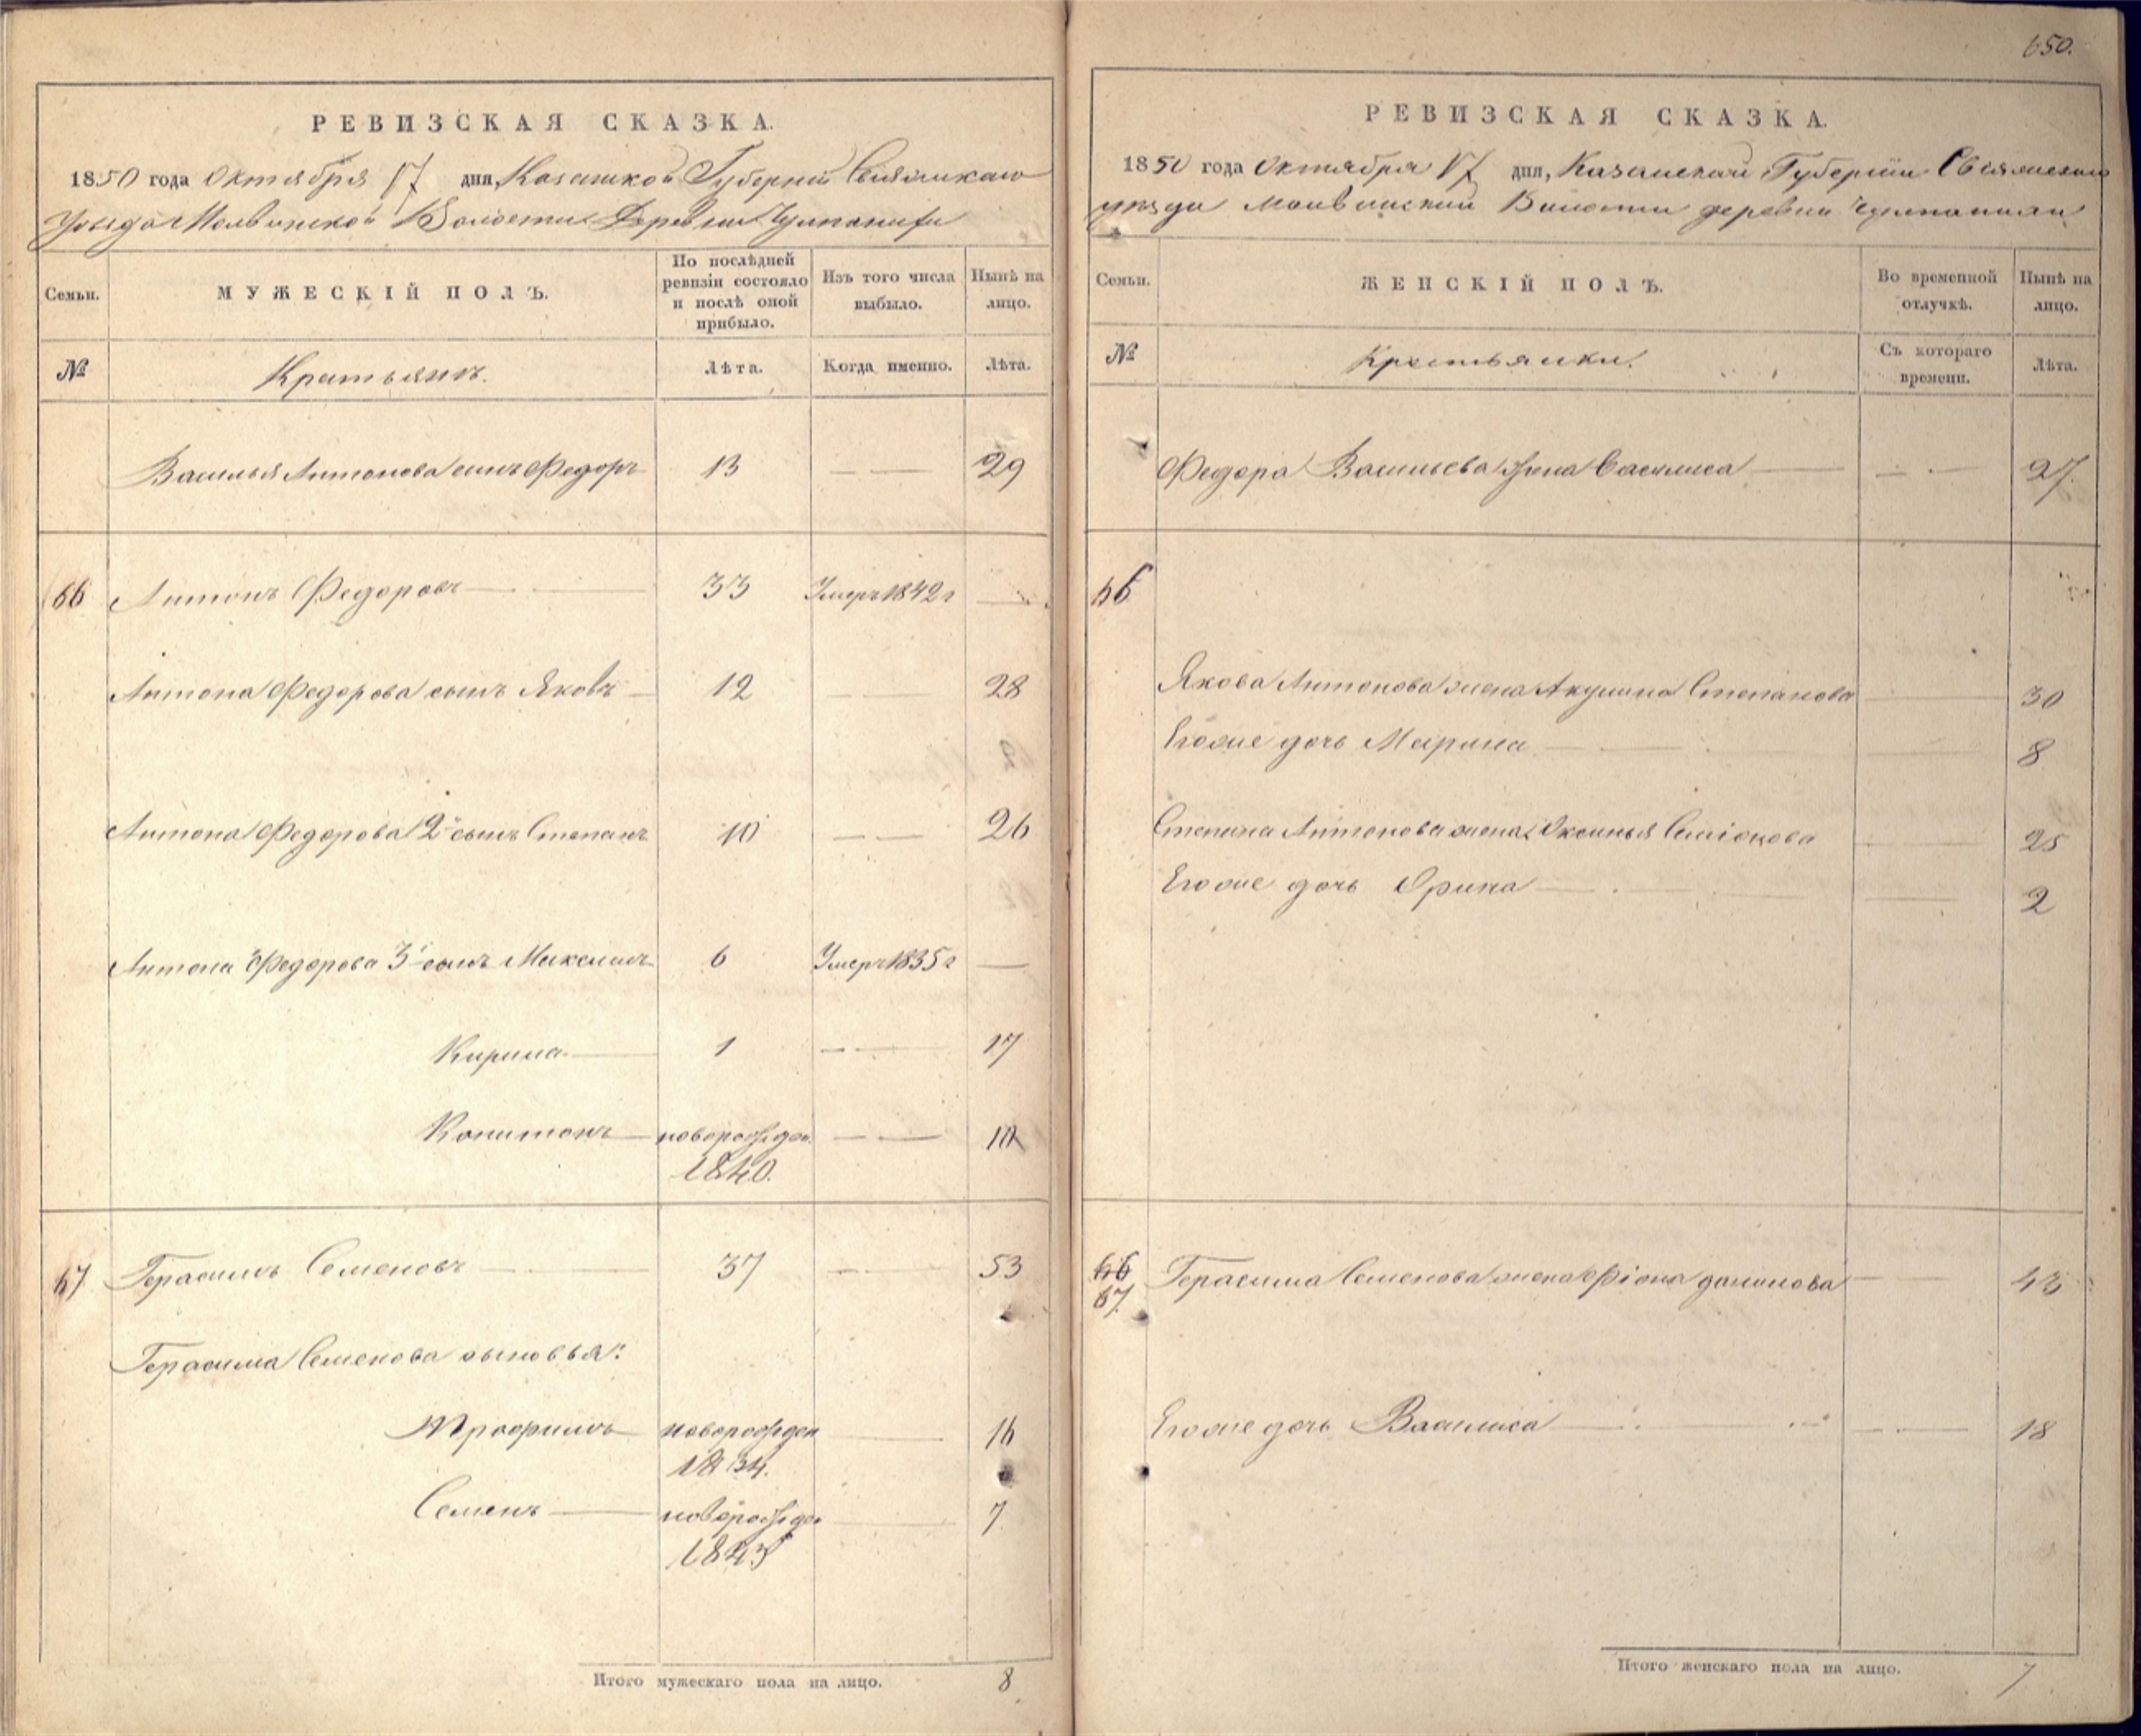 650.
РЕВИЗСКАЯ СКАЗКА.
1850 года Октября 17 дня, Казанской Губерніи Свіяжскаго
Уѣзда Молвинской Волости Деревни
Семьи.
МУЖЕСКІЙ ПОЛЪ.
По послѣдней ревизіи состояло и послѣ оной прибыло.
Изъ того числа выбыло.
Нынѣ на лицо.
№
Лѣта.
Когда именно.
Лѣта.
Василья Антонова сынъ Федоръ 13 29
66 Антонъ Федоровъ 33 Умеръ 1842 г
Антона Федорова сынъ Яковъ 12 28
Антона Федорова 2й сынъ Степанъ 10 26
Антона Федорова 3й сынъ Максимъ 6 Умеръ 1835 г
Кирила 1 17
Копитонъ новорожден. 10
1840.
67 Герасимъ Семеновъ 37 53
Герасима Семенова сыновья:
Трофимъ новорожден 16
1834.
Семенъ новорожден 7
1843
Итого мужескаго пола на лицо. 8
РЕВИЗСКАЯ СКАЗКА.
1850 года Октября 17 дня, Казанской Губерніи Свіяжскаго
уѣзда Молвинской Волости деревни
Семьи.
ЖЕНСКІЙ ПОЛЪ.
Во временной отлучкѣ.
Нынѣ на лицо.
№
Крестьянки.
Съ котораго времени.
Лѣта.
Федора Васильева жена Василиса 27.
66
Якова Антонова жена Акулина Степанова 30
Егоже дочь Марина 8
Степана Антонова жена Оксинья Семіонова 25
Егоже дочь Орина 2
66
67. Герасима Семенова жена Фіона данилова 43
Егоже дочь Василиса 18
Итого женскаго пола на лицо. 7